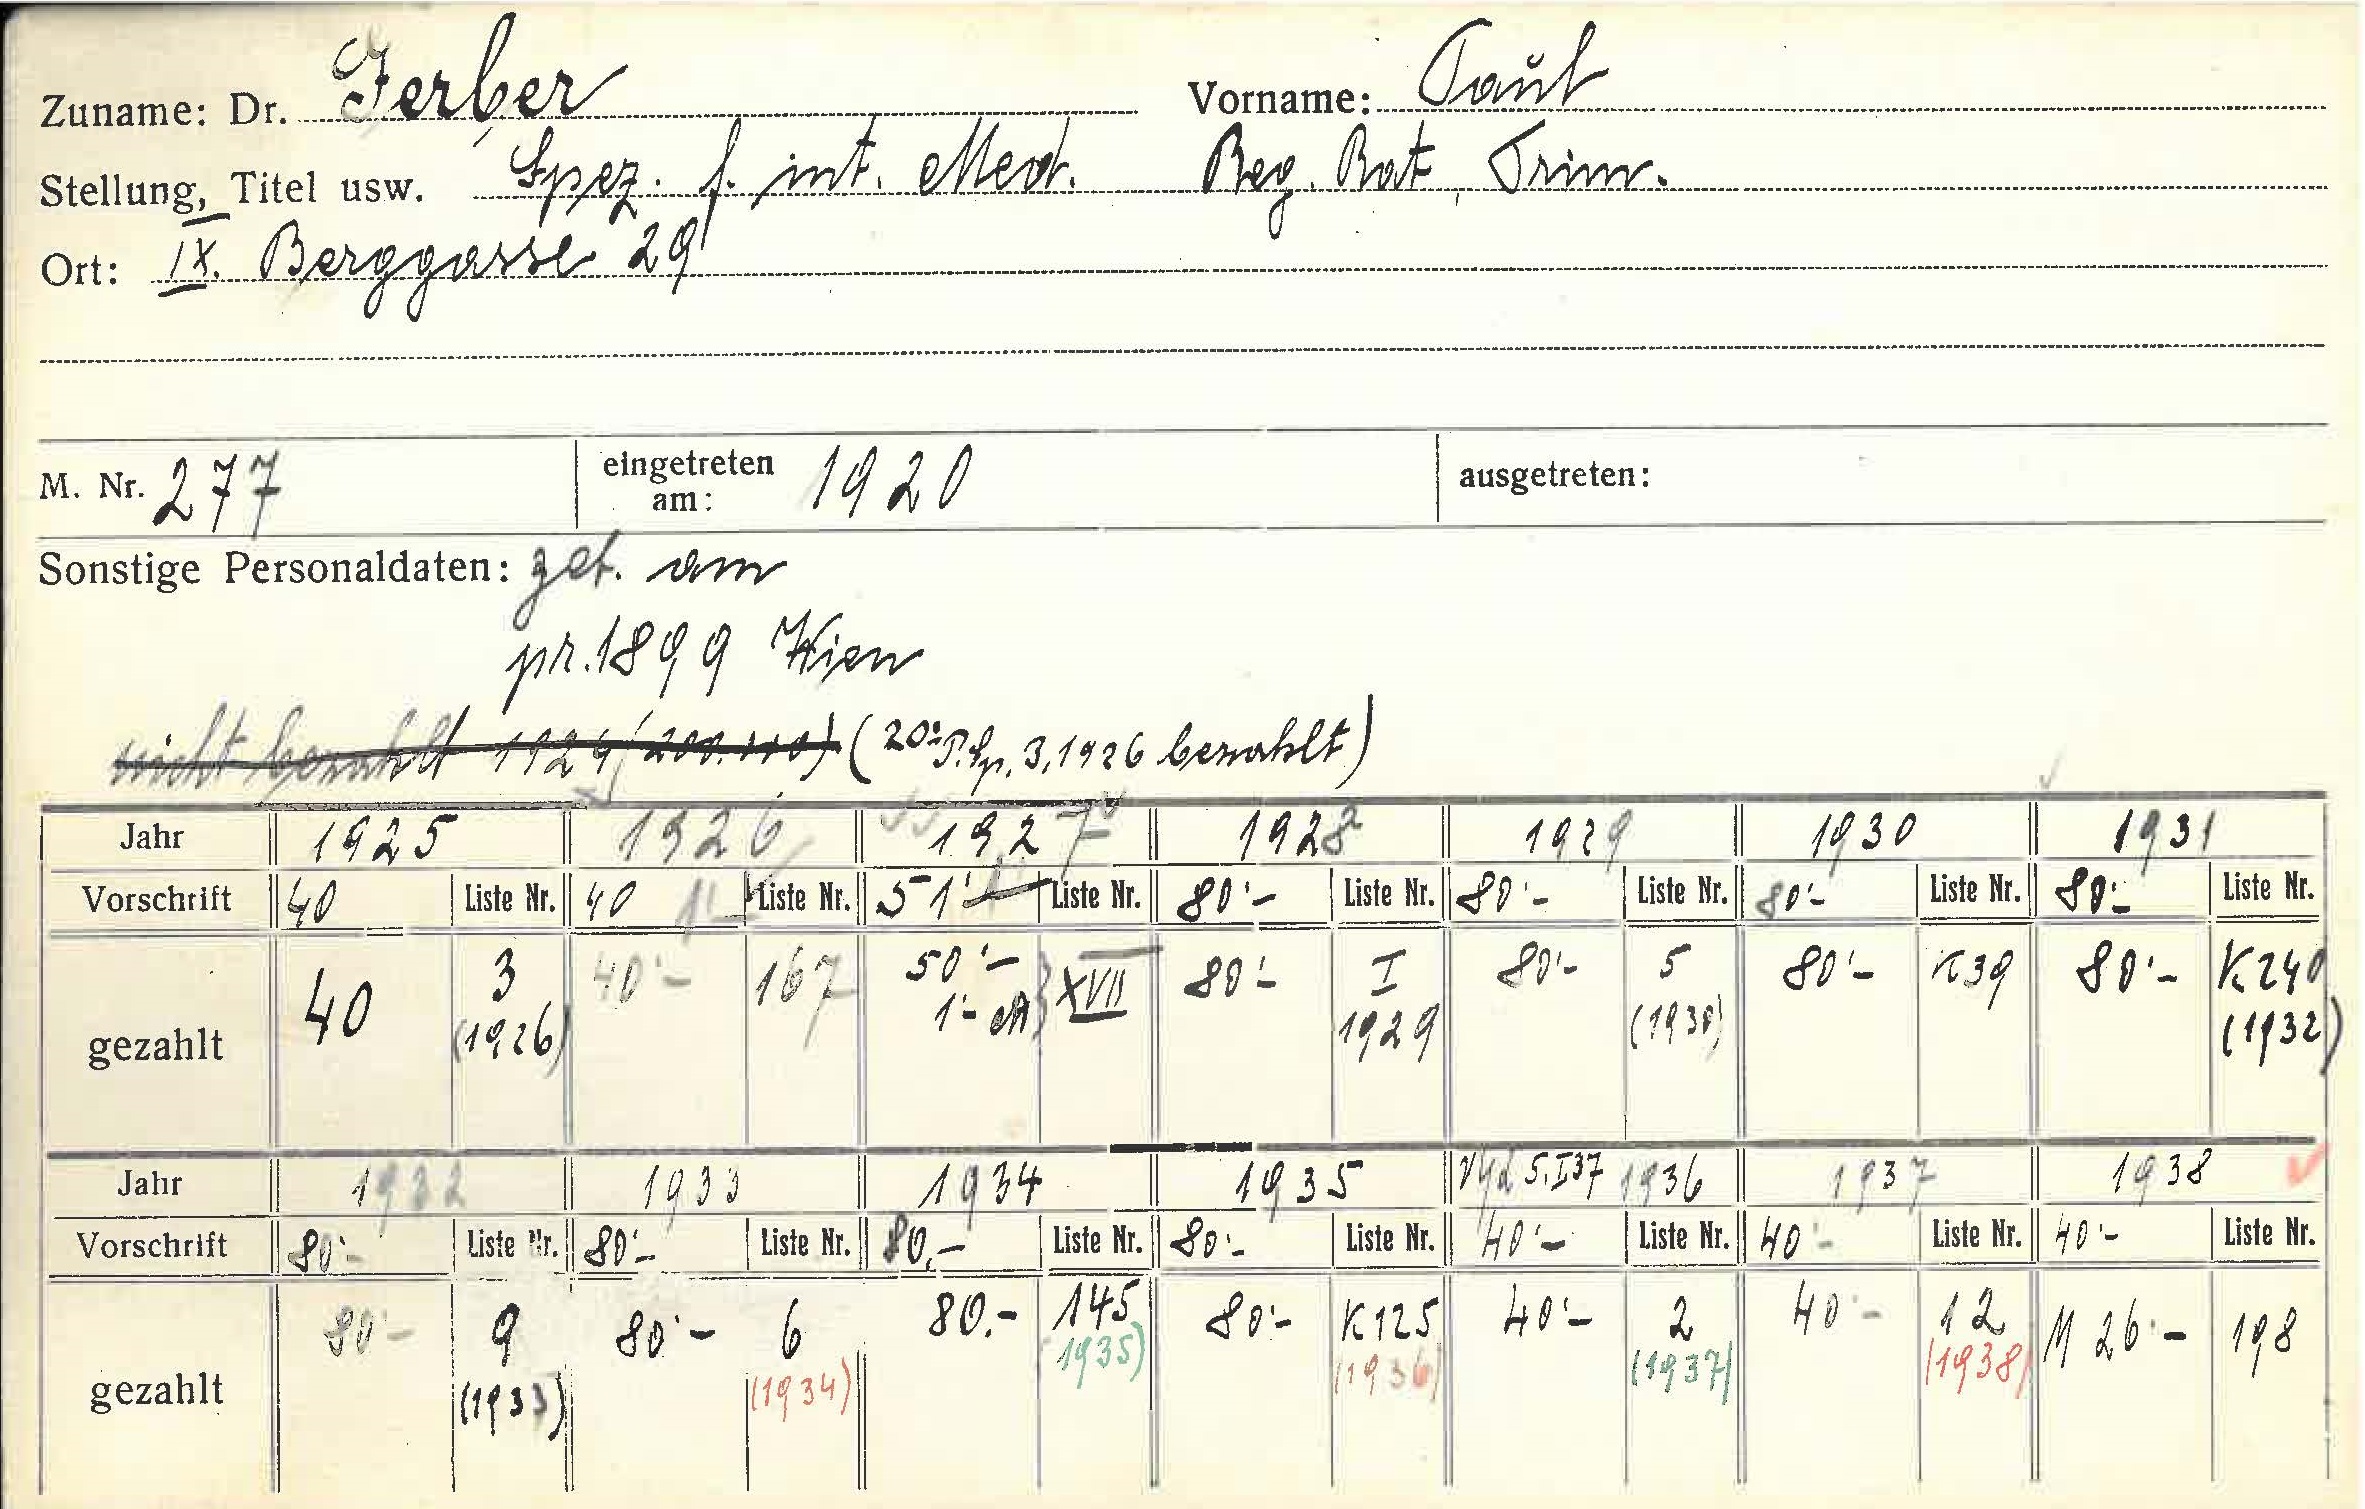 Zuname: Dr. Ferber Vorname: Paul
Stellung, Titel usw. Spez. f. int. Med. Reg. Rat, Prim.
Ort: IX. Berggasse 29
M. Nr. 277 eingetreten am: 1920 ausgetreten:
Sonstige Personaldaten: geb. am
pr. 1899 Wien
nicht bezahlt 1924 (200.000) (20'- P. Sp. 3, 1926 bezahlt)
Jahr 1925 1926 1927 1928 1929 1930 1931
Vorschrift 40 Liste Nr. 40 Liste Nr. 51'- Liste Nr. 80'- Liste Nr. 80'- Liste Nr. 80'- Liste Nr. 80'- Liste Nr.
gezahlt 40 3 (1926) 40'- 167 50'- 1'- XVII 80'- I 1929 80'- 5 (1930) 80'- K39 80'- K240 (1932)
Jahr 1932 1933 1934 1935 5.I37 1936 1937 1938
Vorschrift 80'- Liste Nr. 80'- Liste Nr. 80.- Liste Nr. 80'- Liste Nr. 40'- Liste Nr. 40'- Liste Nr. 40'- Liste Nr.
gezahlt 80'- 9 (1933) 80'- 6 (1934) 80.- 145 1935) 80'- K125 (1936) 40'- 2 (1937) 40'- 12 (1938) M 26'- 198